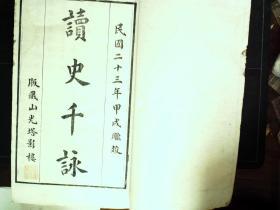 民國二十三年甲戌
讀史千詠
版藏山光塔影樓